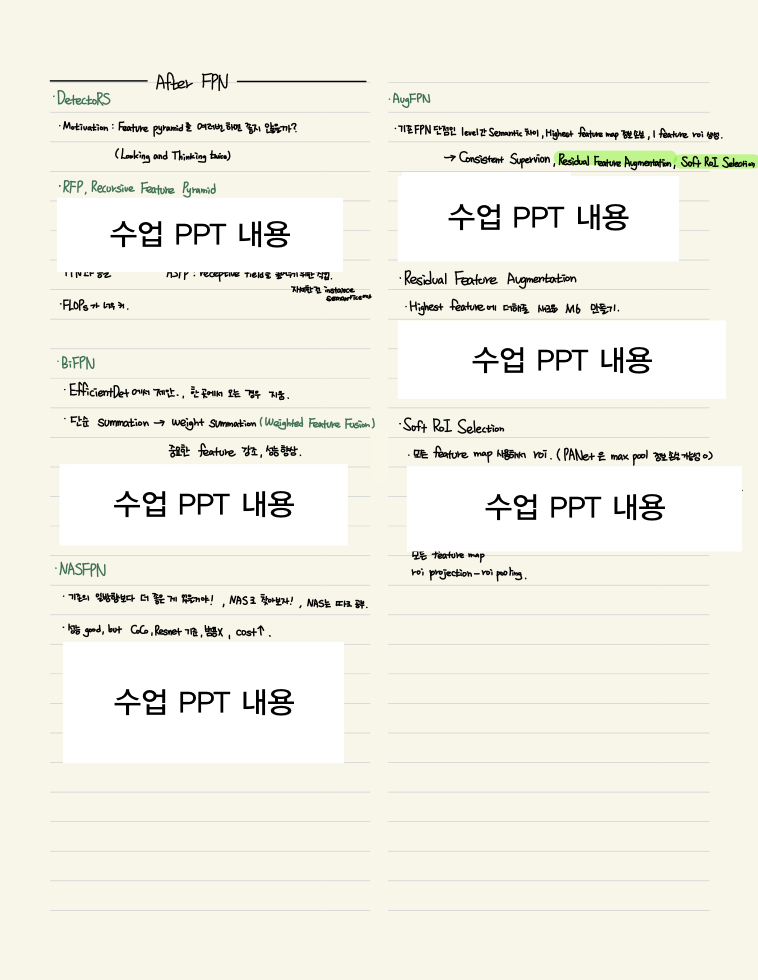 After FPN
·DetectoRS
·Motivation : Feature pyramid을 여러번하면 좋지 않을까?
(Looking and Thinking twice)
·RFP, Recursive Feature Pyramid
수업 PPT 내용
ASPP : receptive field를 위한 작업.
instance
·FLOPs가 너무 커.
·BiFPN
·EfficientDet에서 제안., 한 곳에서 오는 경우 지움.
·단순 summation → weight summation (Weighted Feature Fusion)
중요한 feature 강조, 성능 향상.
수업 PPT 내용
·NASFPN
·기존의 일방향보다 더 좋은 게 있을거야! , NAS로 찾아보자! , NAS는 따로 공부.
·성능 good, but CoCo, Resnet 기준, 범용X , cost↑.
수업 PPT 내용
·AugFPN
·기존FPN 단점인 level간 Semantic 차이, Highest feature map 정보손실, 1 feature roi 생성.
→ Consistent Supervion, Residual Feature Augmentation, Soft RoI Selection
수업 PPT 내용
·Residual Feature Augmentation
·Highest feature에 더해줄 새로운 M6 만들기.
수업 PPT 내용
·Soft RoI Selection
·모든 feature map 사용해서 roi. (PANet은 max pool 정보손실가능성 o)
수업 PPT 내용
모든 feature map
roi projection - roi pooling.